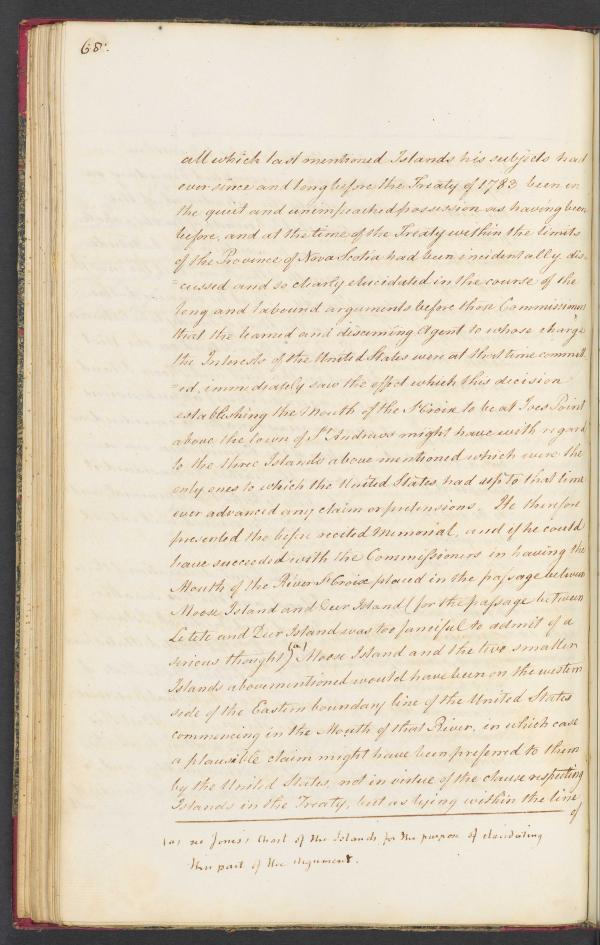 68.
all which last mentioned Islands his subjects had
ever since and long before the Treaty of 1783 been in
the quiet and unimpeached possession as having been
before, and at the time of the Treaty within the limits
of the Province of Nova Scotia had been incidentally dis-
=cussed and so clearly elucidated in the course of the
long and labound arguments before those Commissioners
that the learned and discerning Agent to whose charge
the Interests of the United States were at that time committ
=ed, immediately saw the effect which this decision
establishing the Mouth of the St Croix to be at Joes Point
above the town of St Andrews might have with regard
to the three Islands above mentioned which were the
only ones to which the United States had up to that time
ever advanced any claim or pretensions. He therefore
presented the before recited Memorial, and if he could
have succeeded with the Commissioners in having the
Mouth of the River St Croix placed in the passage between
Moose Island and Deer Island (for the passage between
Letete and Deer Island was too fanciful to admit of a
serious thought) (a) Moose Island and the two smaller
Islands abovementioned would have been on the western
side of the Eastern boundary line of the United States
commencing in the Mouth of that River, in which case
a plausible claim might have been preferred to them
by the United States, not in virtue of the clause respecting
Islands in the Treaty, but as lying within the line
of
(a) see Jones's Chart of the Islands for the purpose of elucidating
this part of the argument.